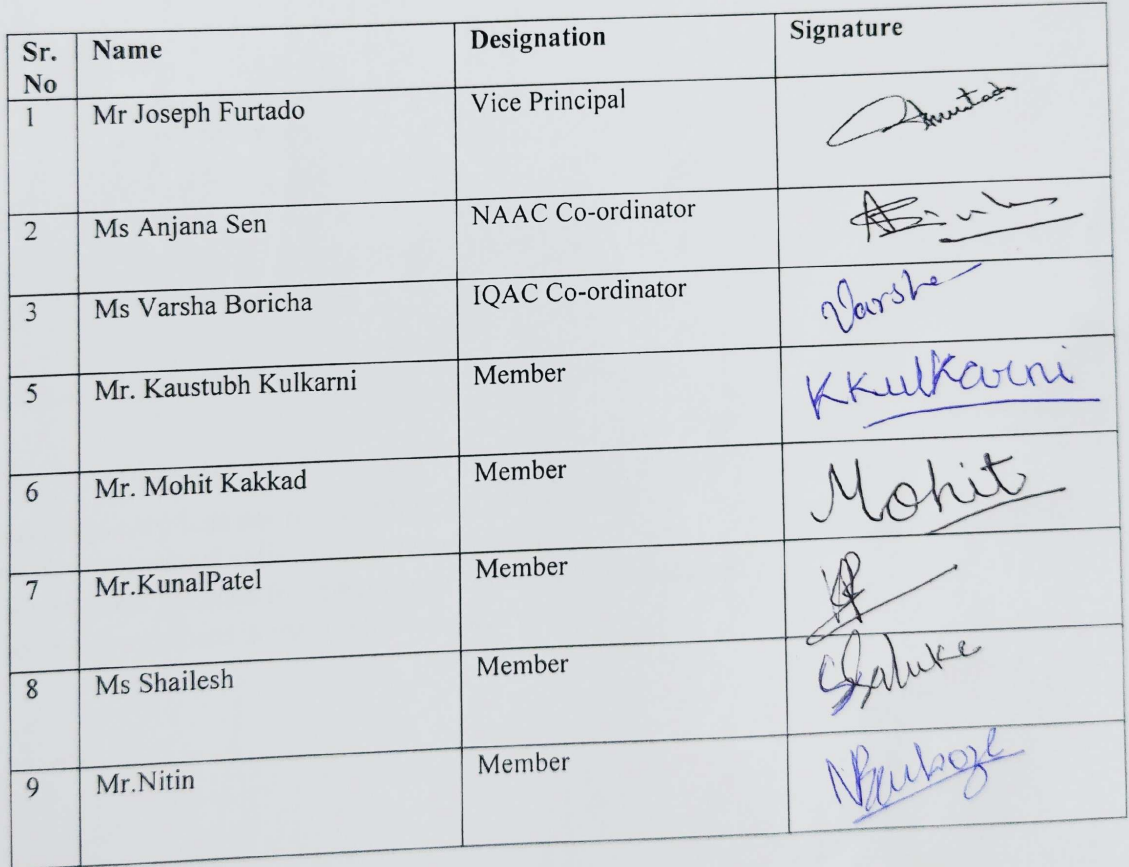 Sr. No Name Designation Signature
1 Mr Joseph Furtado Vice Principal
2 Ms Anjana Sen NAAC Co-ordinator
3 Ms Varsha Boricha IQAC Co-ordinator Varsha
5 Mr. Kaustubh Kulkarni Member KKulkarni
6 Mr. Mohit Kakkad Member Mohit
7 Mr.KunalPatel Member
8 Ms Shailesh Member
9 Mr.Nitin Member